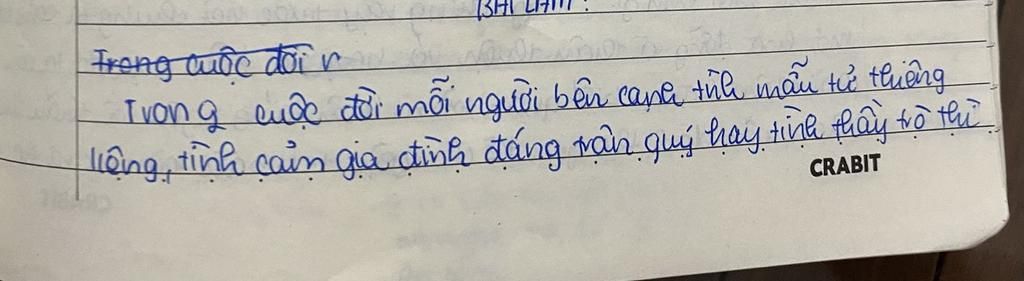 BÀI LÀM:
Trong cuộc đời r
Trong cuộc đời mỗi người bên cạnh tình mẫu tử thiêng
liêng, tình cảm gia đình đáng trân quý hay tình thầy trò thì
CRABIT